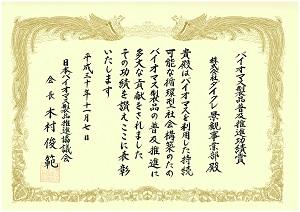 バイオマス製品普及推進功績賞
株式会社ダイクレ景観事業部殿
貴殿はバイオマスを利用した持続
可能な循環型社会構築のため
バイオマス製品の普及推進に
多大な貢献をされました
その功績を讃えここに表彰
いたします
平成三十年十一月七日
日本バイオマス製品推進協議会
会長 木村俊範